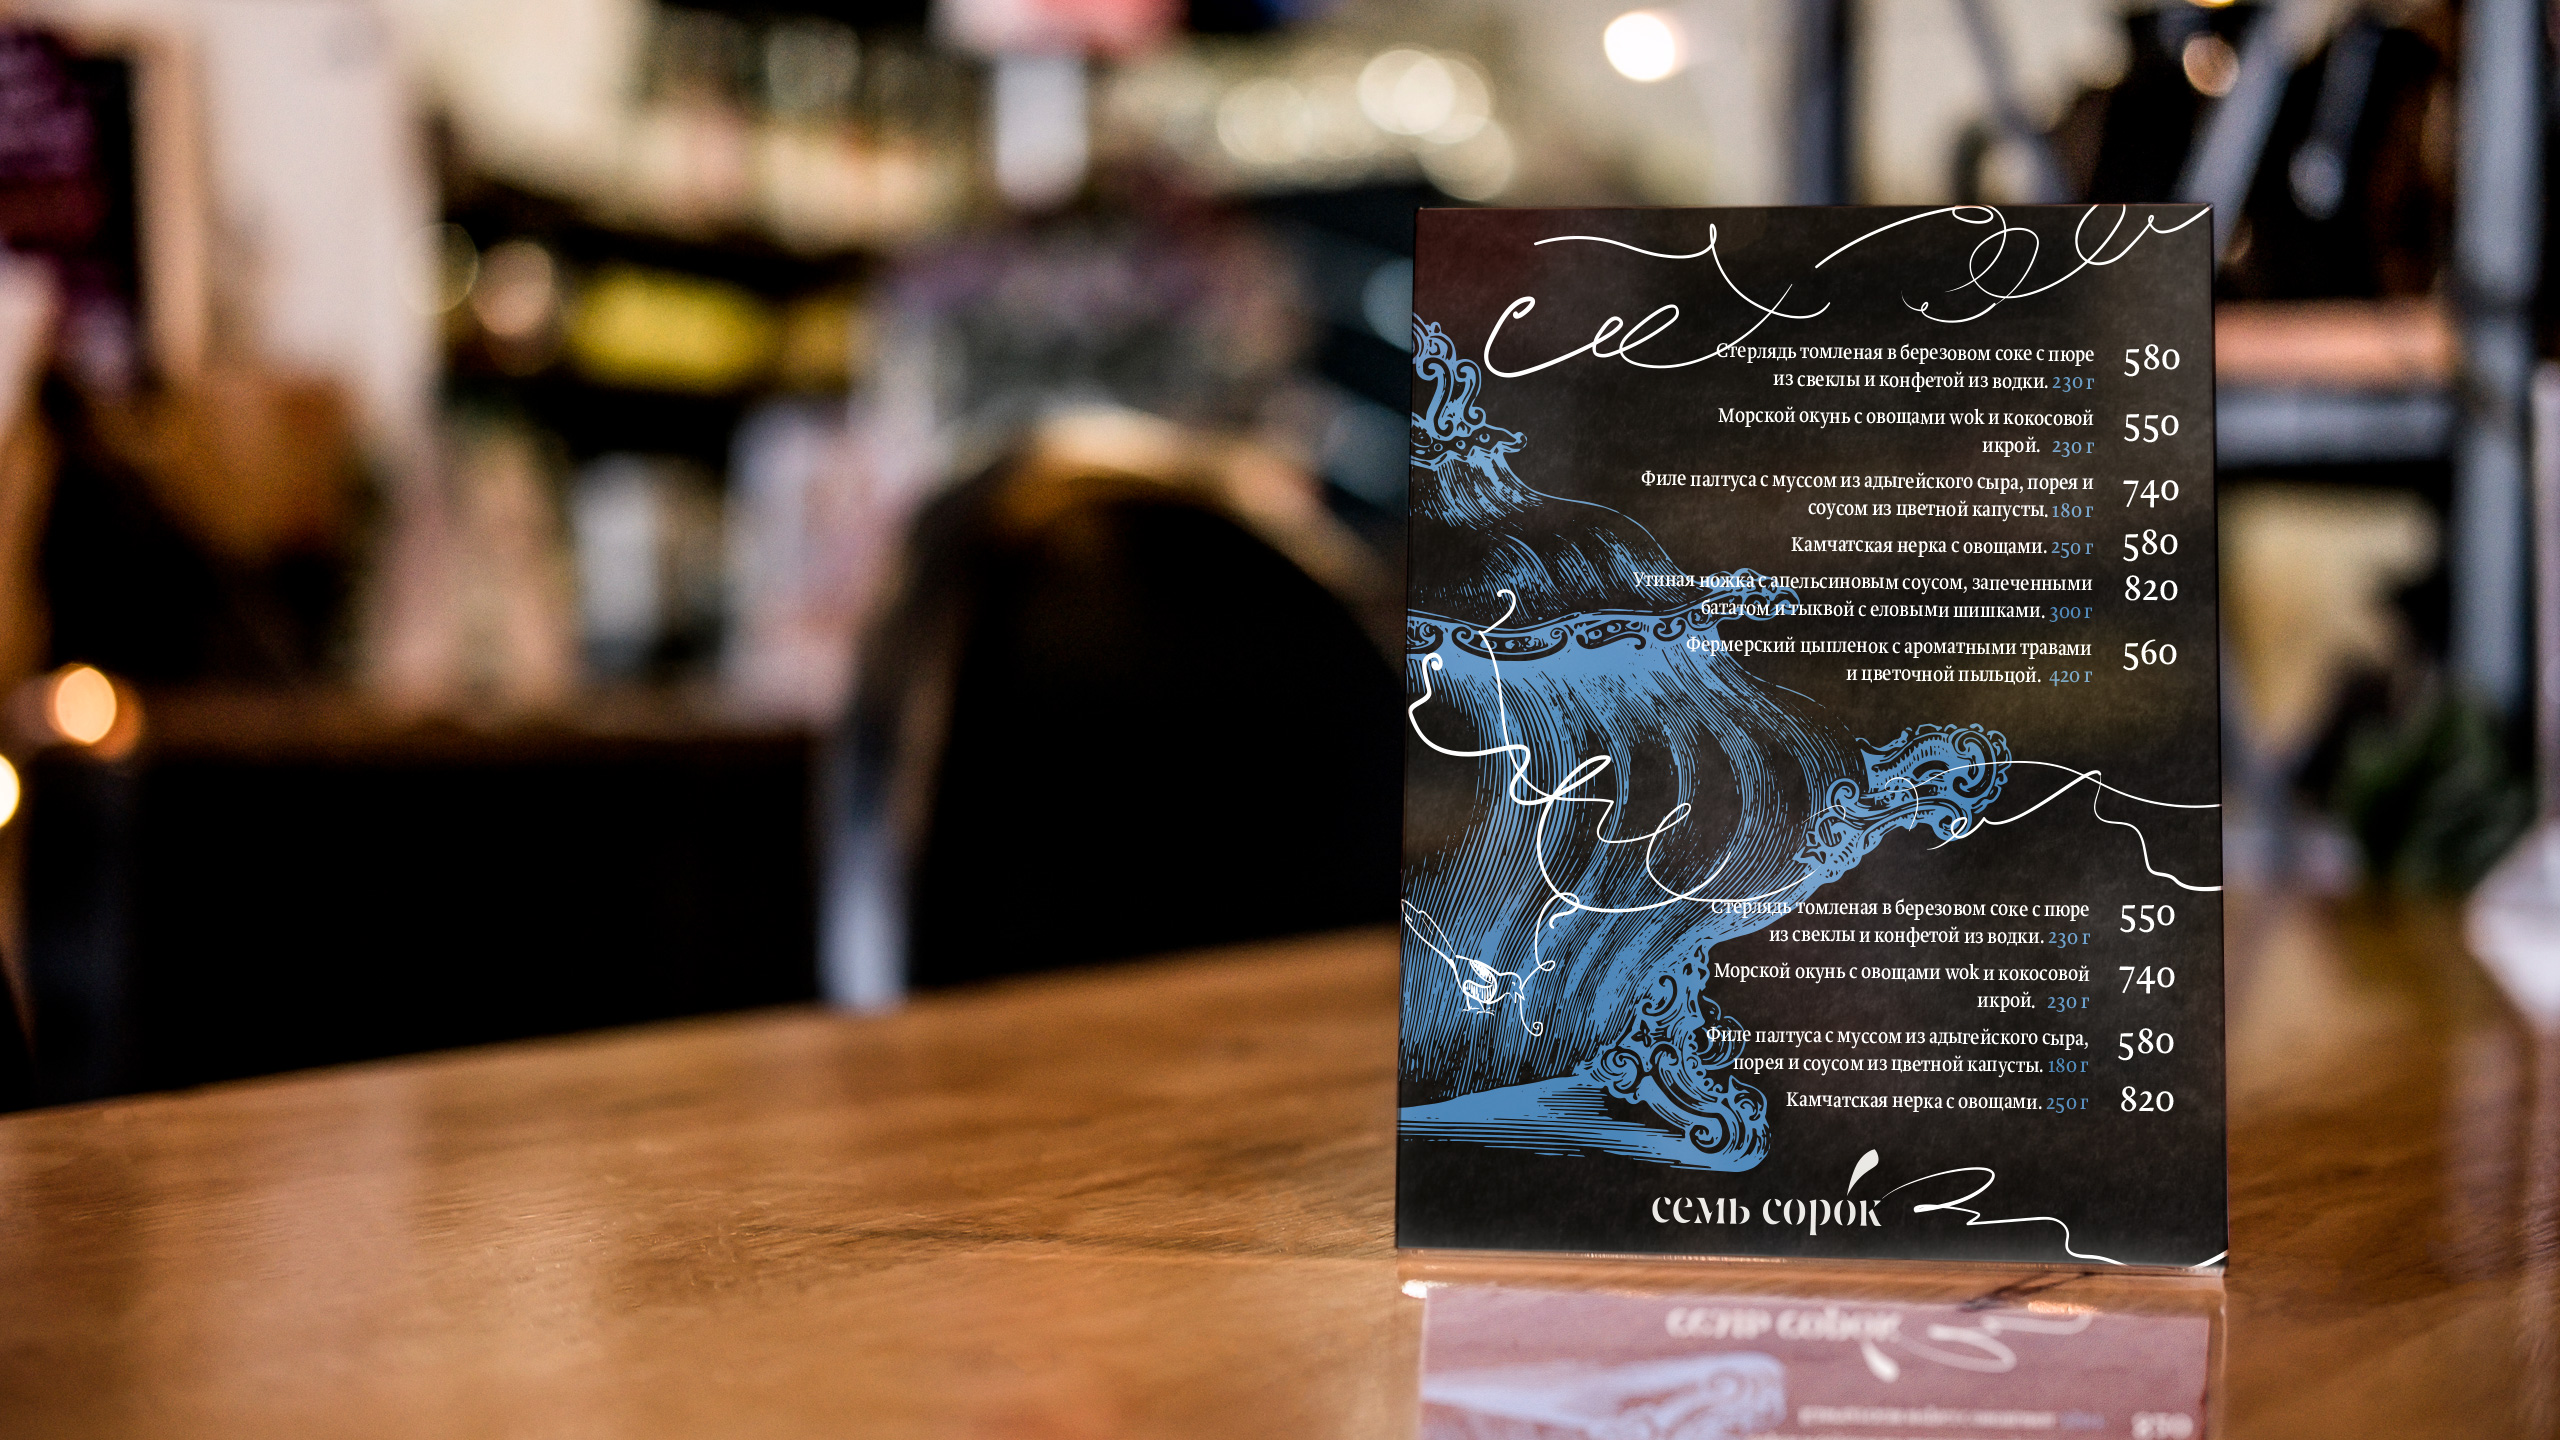 Стерлядь томленая в березовом соке с пюре 580
из свеклы и конфетой из водки. 230 г
Морской окунь с овощами wok и кокосовой 550
икрой. 230 г
Филе палтуса с муссом из адыгейского сыра, порея и 740
соусом из цветной капусты. 180 г
Камчатская нерка с овощами. 250 г 580
Утиная ножка с апельсиновым соусом, запеченными 820
бататом и тыквой с еловыми шишками. 300 г
Фермерский цыпленок с ароматными травами 560
и цветочной пыльцой. 420 г
Стерлядь томленая в березовом соке с пюре 550
из свеклы и конфетой из водки. 230 г
Морской окунь с овощами wok и кокосовой 740
икрой. 230 г
Филе палтуса с муссом из адыгейского сыра, 580
порея и соусом из цветной капусты. 180 г
Камчатская нерка с овощами. 250 г 820
семь сорок